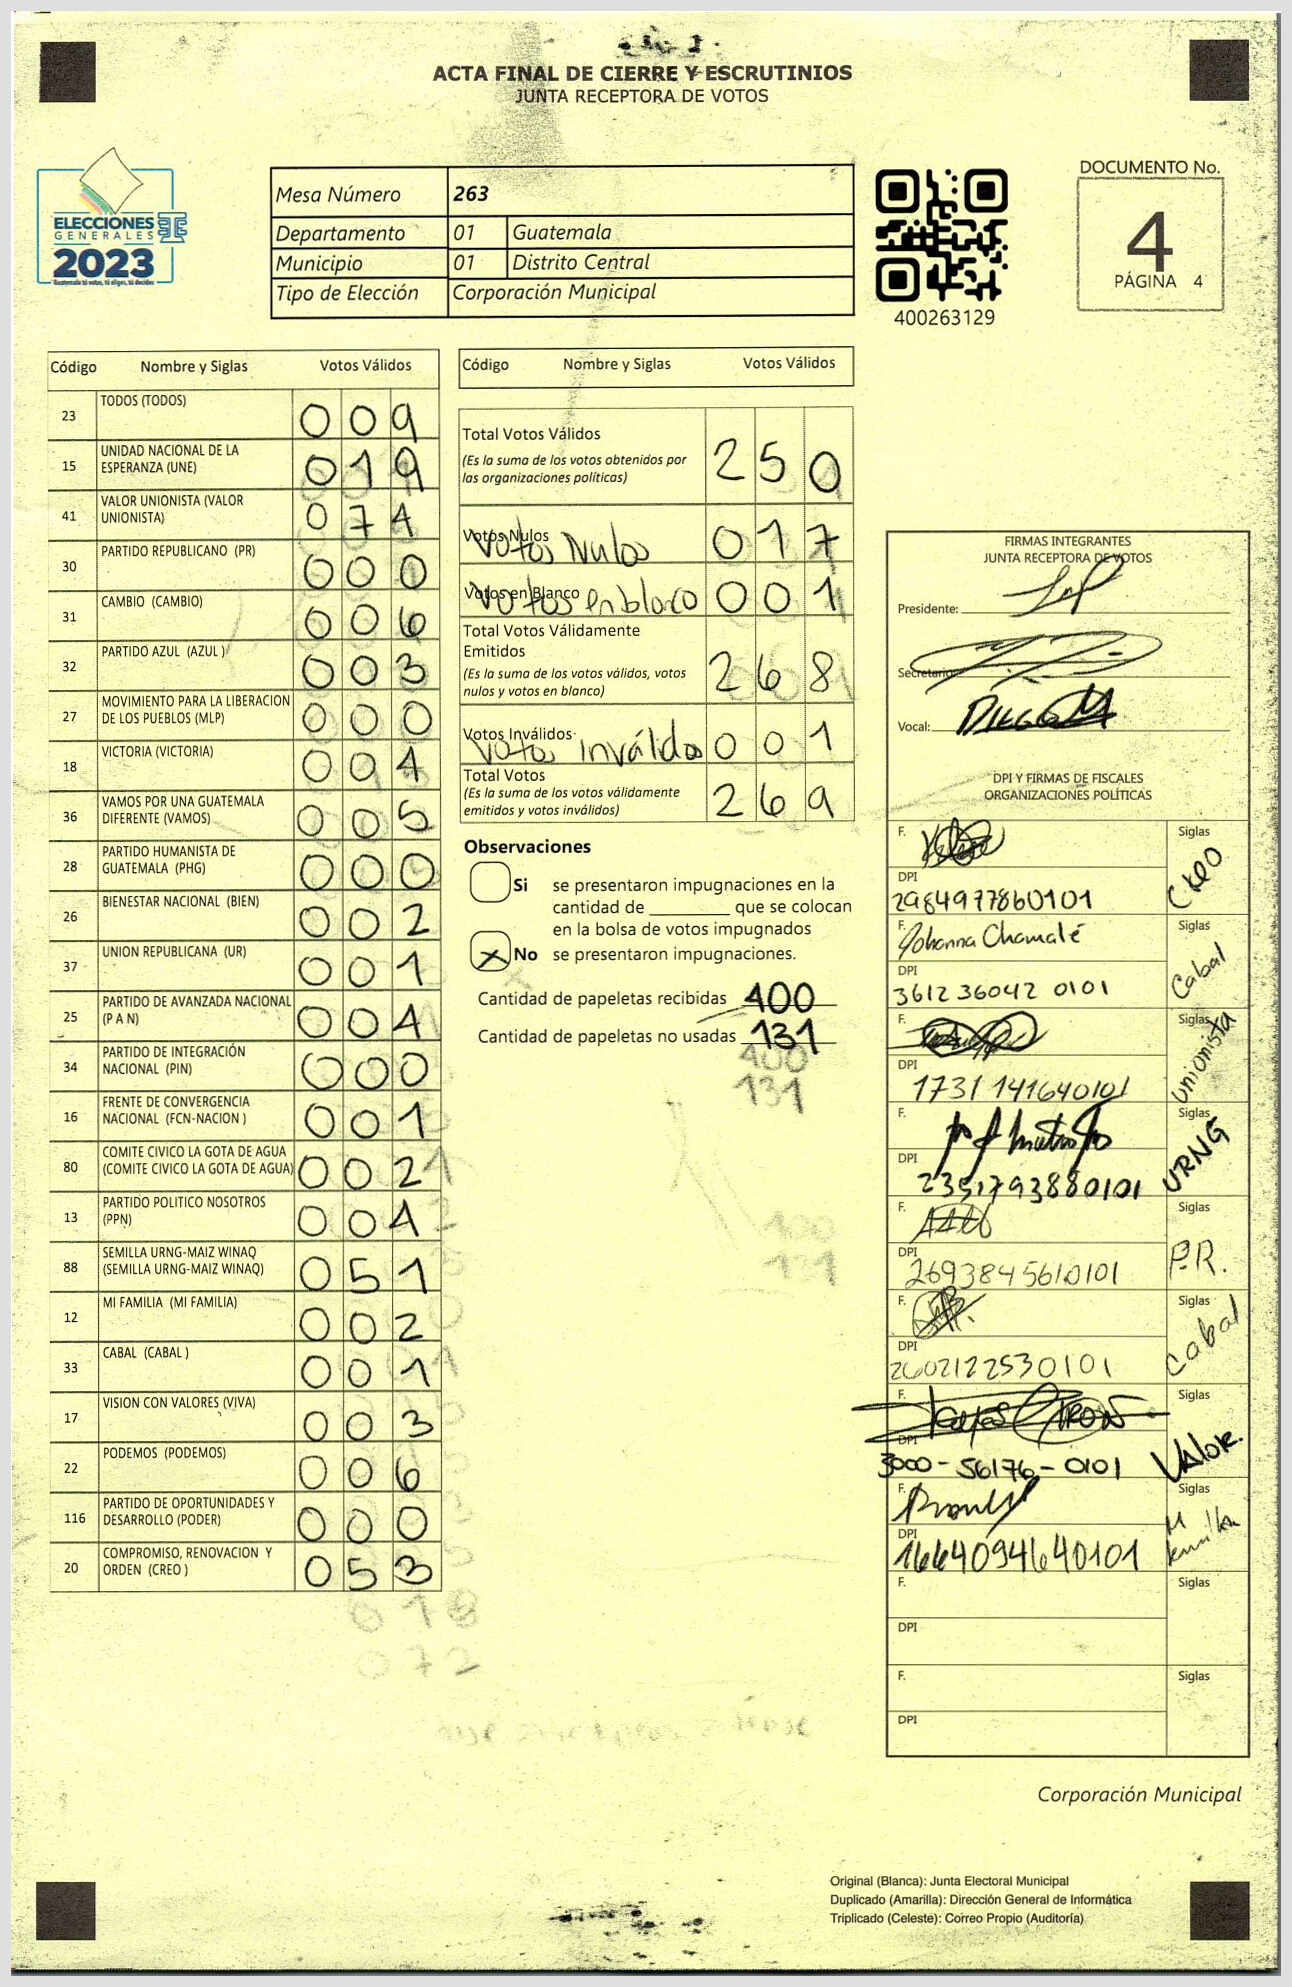 ACTA FINAL DE CIERRE Y ESCRUTINIOS
JUNTA RECEPTORA DE VOTOS
ELECCIONES
GENERALES
2023
Guatemala tú votas, tú eliges, tú decides
Mesa Número 263
Departamento 01 Guatemala
Municipio 01 Distrito Central
Tipo de Elección Corporación Municipal
400263129
DOCUMENTO No.
4
PÁGINA 4
Código Nombre y Siglas Votos Válidos
23 TODOS (TODOS) 009
15 UNIDAD NACIONAL DE LA
ESPERANZA (UNE) 019
41 VALOR UNIONISTA (VALOR
UNIONISTA) 074
30 PARTIDO REPUBLICANO (PR) 000
31 CAMBIO (CAMBIO) 006
32 PARTIDO AZUL (AZUL ) 003
27 MOVIMIENTO PARA LA LIBERACION
DE LOS PUEBLOS (MLP) 000
18 VICTORIA (VICTORIA) 004
36 VAMOS POR UNA GUATEMALA
DIFERENTE (VAMOS) 005
28 PARTIDO HUMANISTA DE
GUATEMALA (PHG) 000
26 BIENESTAR NACIONAL (BIEN) 002
37 UNION REPUBLICANA (UR) 001
25 PARTIDO DE AVANZADA NACIONAL
(P A N) 004
34 PARTIDO DE INTEGRACIÓN
NACIONAL (PIN) 000
16 FRENTE DE CONVERGENCIA
NACIONAL (FCN-NACION ) 001
80 COMITE CIVICO LA GOTA DE AGUA
(COMITE CIVICO LA GOTA DE AGUA) 002
13 PARTIDO POLITICO NOSOTROS
(PPN) 004
88 SEMILLA URNG-MAIZ WINAQ
(SEMILLA URNG-MAIZ WINAQ) 051
12 MI FAMILIA (MI FAMILIA) 002
33 CABAL (CABAL ) 001
17 VISION CON VALORES (VIVA) 003
22 PODEMOS (PODEMOS) 006
116 PARTIDO DE OPORTUNIDADES Y
DESARROLLO (PODER) 000
20 COMPROMISO, RENOVACION Y
ORDEN (CREO ) 053
018
072
Código Nombre y Siglas Votos Válidos
Total Votos Válidos
(Es la suma de los votos obtenidos por
las organizaciones políticas) 250
Votos Nulos
Votos Nulos 017
Votos en Blanco
Votos en blanco 001
Total Votos Válidamente
Emitidos
(Es la suma de los votos válidos, votos
nulos y votos en blanco) 268
Votos Inválidos
Votos Inválidos 001
Total Votos
(Es la suma de los votos válidamente
emitidos y votos inválidos) 269
Observaciones
Si se presentaron impugnaciones en la
cantidad de ________ que se colocan
en la bolsa de votos impugnados
X No se presentaron impugnaciones.
Cantidad de papeletas recibidas 400
Cantidad de papeletas no usadas 131
400
131
100
131
FIRMAS INTEGRANTES
JUNTA RECEPTORA DE VOTOS
Presidente:
Secretario:
Vocal: DIEGO M
DPI Y FIRMAS DE FISCALES
ORGANIZACIONES POLÍTICAS
F. Siglas
DPI CREO
2984977860101
F. Johanna Chamalé Siglas
DPI Cabal
3612 36042 0101
F. Siglas
DPI Unionista
1731 141640101
F. Siglas
DPI URNG
2351793880101
F. Siglas
DPI P.R.
2693845610101
F. Siglas
DPI Cabal
2602122530101
F. Siglas
DPI Valor.
3000-56176-0101
F. Siglas
DPI
1664094640101
F. Siglas
DPI
F. Siglas
DPI
Corporación Municipal
Original (Blanca): Junta Electoral Municipal
Duplicado (Amarilla): Dirección General de Informática
Triplicado (Celeste): Correo Propio (Auditoría)